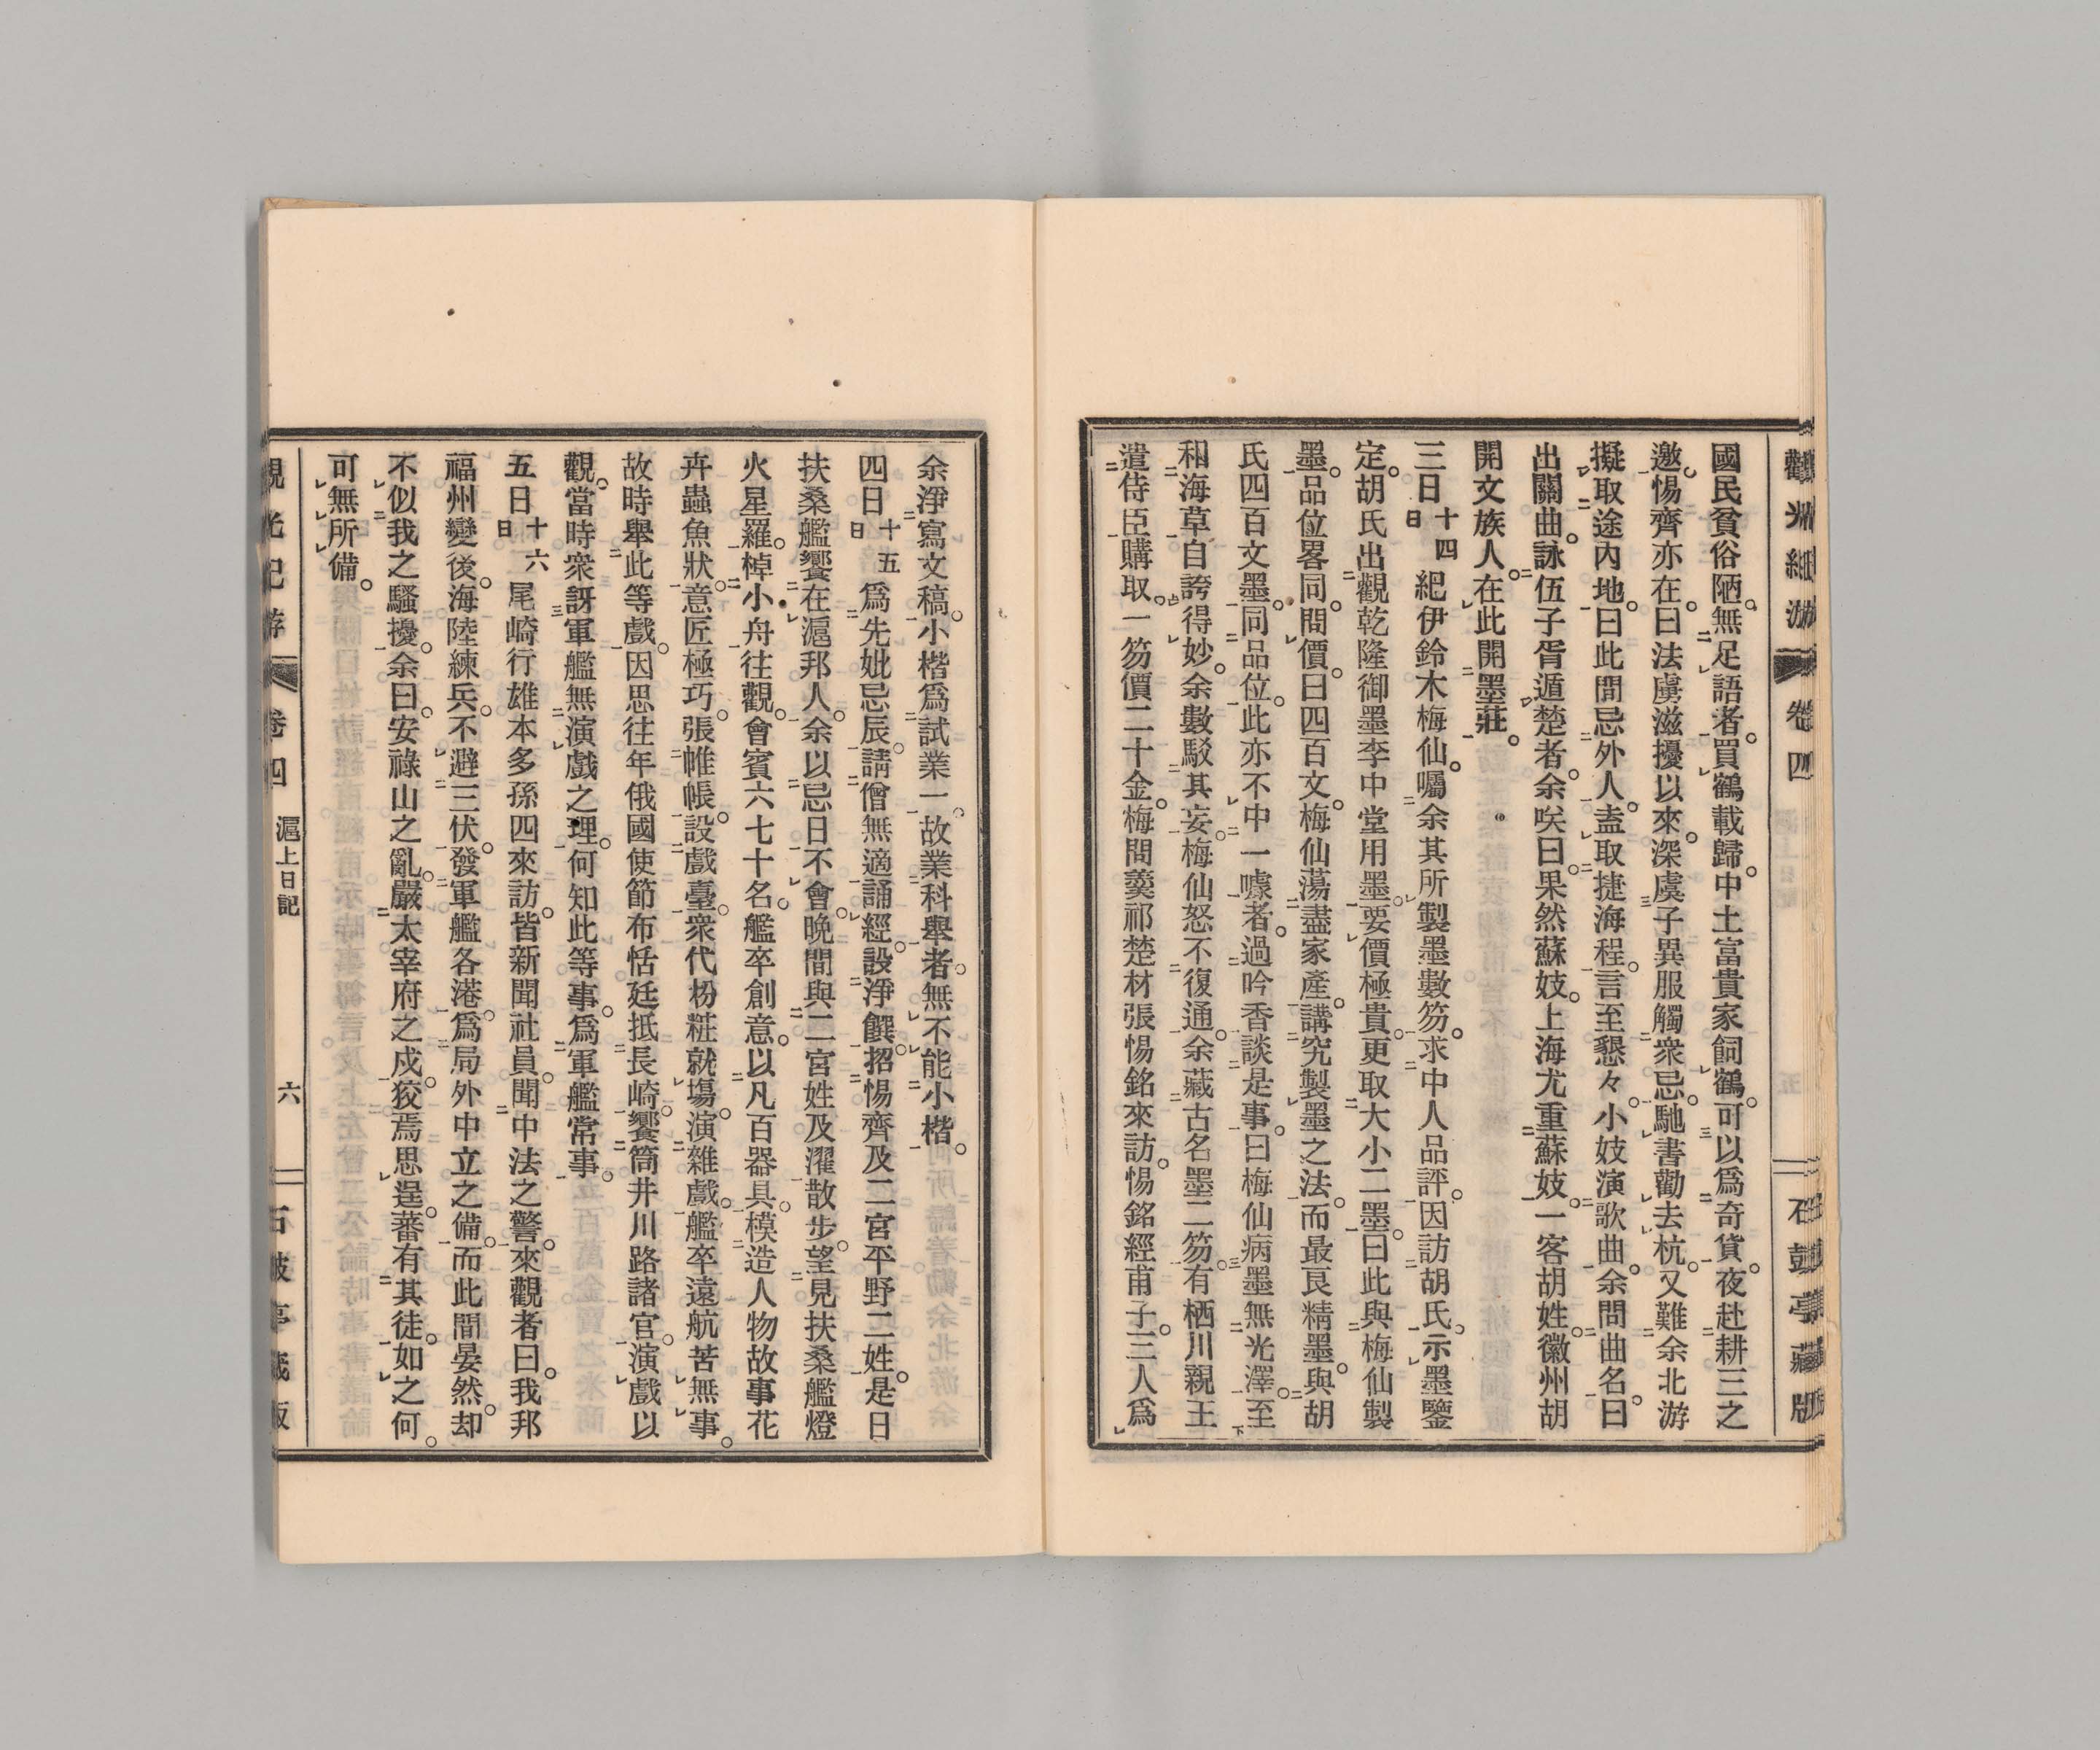 國民貧俗陋。無足語者。買鶴載歸。中土富貴家飼鶴。可以爲奇貨。夜赴耕三之
邀。惕齊亦在。曰法虜滋擾以來。深虞子異服觸衆忌。馳書勸去杭。又難余北游
擬取途內地。曰此間忌外人。盍取捷海程。言至懇々。小妓演歌曲。余問曲名。曰
出關曲。詠伍子胥遁楚者。余咲曰。果然蘇妓。上海尤重蘇妓。一客胡姓。徽州胡
開文族人。在此開墨莊。
三日十四日紀伊鈴木梅仙。囑余其所製墨數笏。求中人品評。因訪胡氏。示墨鑒
定。胡氏出觀乾隆御墨李中堂用墨。要價極貴。更取大小二墨。曰此與梅仙製
墨。品位畧同。問價。曰四百文。梅仙蕩盡家產。講究製墨之法。而最良精墨。與胡
氏四百文墨。同品位。此亦不中一噱者。過吟香談是事。曰梅仙病墨無光澤。至
和海草自誇得妙。余數駁其妄。梅仙怒不復通。余藏古名墨二笏。有栖川親王
遣侍臣購取。一笏價二十金。梅問羹祁楚材張惕銘來訪。惕銘經甫子。三人爲
余淨寫文稿。小楷爲試業一。故業科舉者。無不能小楷。
四日十五日爲先妣忌辰。請僧無適誦經。設淨饌。招惕齊及二宮平野二姓。是日
扶桑艦饗在滬邦人。余以忌日不會。晚間與二宮姓及濯散步。望見扶桑艦燈
火星羅。棹小舟往觀。會賓六七十名。艦卒創意。以凡百器具。模造人物故事花
卉蟲魚狀。意匠極巧。張帷帳。設戲臺。衆代粉粧就場。演雜戲。艦卒遠航苦無事。
故時舉此等戲。因思往年俄國使節布恬廷抵長崎。饗筒井川路諸官。演戲以
觀。當時衆訝軍艦無演戲之理。何知此等事。爲軍艦常事。
五日十六日尾崎行雄本多孫四來訪。皆新聞社員。聞中法之警。來觀者。曰。我邦
福州變後。海陸練兵。不避三伏。發軍艦各港。爲局外中立之備。而此間晏然。却
不似我之騷擾。余曰。安祿山之亂。嚴太宰府之戍。狡焉思逞。蕃有其徒。如之何
可無所備。
卷四 滬上日記 六